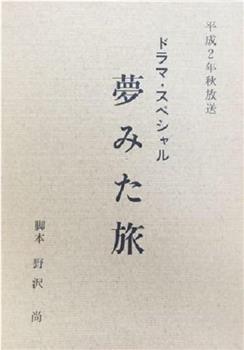 平成2年秋放送
ドラマ・スペシャル
夢みた旅
脚本 野沢 尚